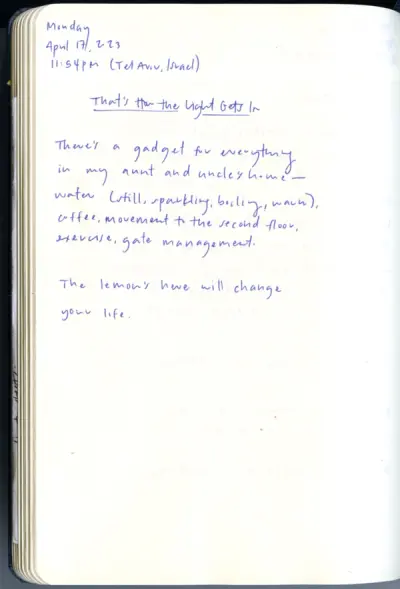 Monday
April 17, 2023
11:54pm (Tel Aviv, Israel)
That's How the Light Gets In
There's a gadget for everything
in my aunt and uncle's home—
water (still, sparkling, boiling, warm),
coffee, movement to the second floor,
exercise, gate management.
The lemon's here will change
your life.